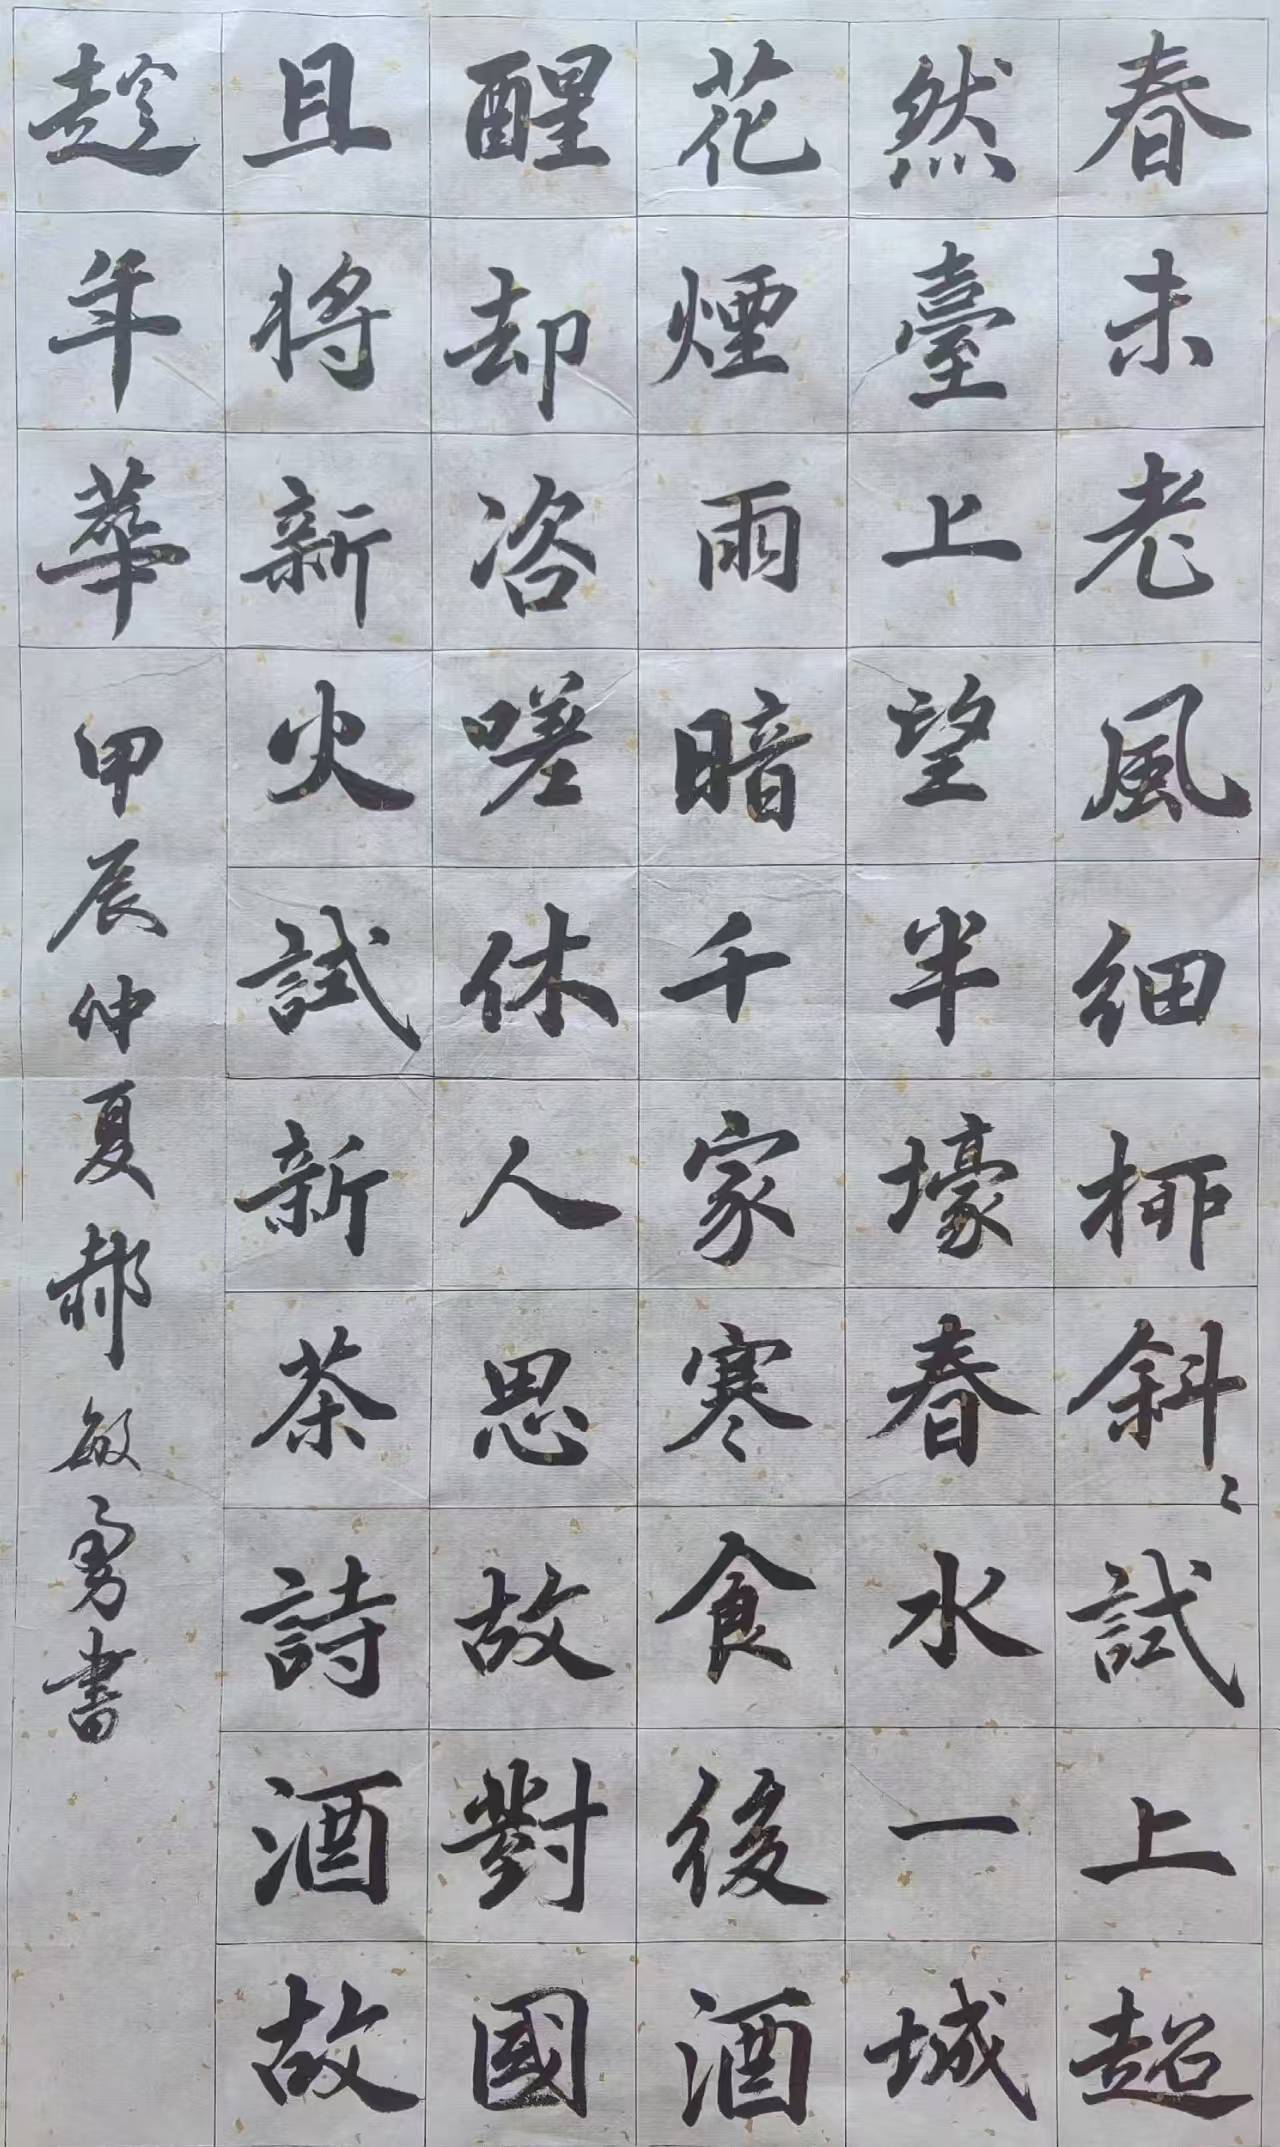 春未老風細柳斜〻試上超
然臺上望半壕春水一城
花煙雨暗千家寒食後酒
醒却咨嗟休人思故對國
且將新火試新茶詩酒故
趁年華
甲辰仲夏郝敏勇書